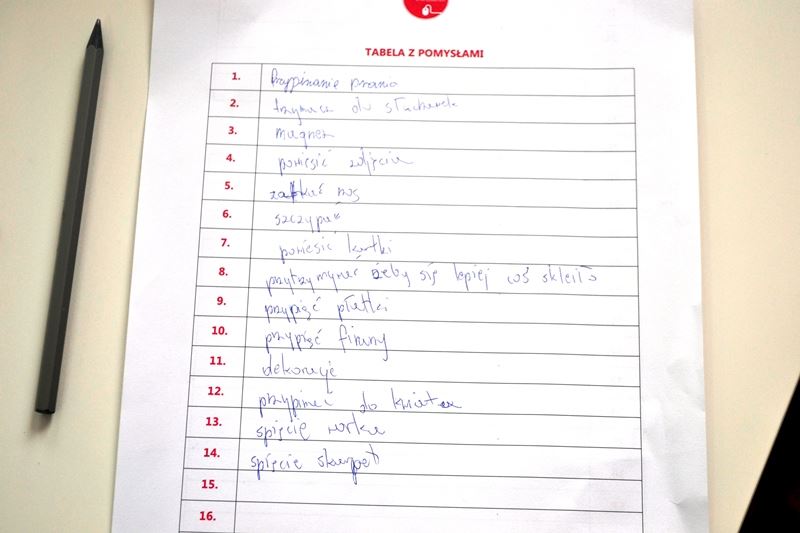 TABELA Z POMYSŁAMI
1. Przypinanie prania
2. trzymacz do słuchawek
3. magnes
4. powiesić zdjęcia
5. zatkać nos
6. szczypać
7. powiesić kartki
8. przytrzymywać żeby się lepiej coś skleiło
9. przypiąć płatki
10. przypiąć firany
11. dekoracje
12. przypinać do kwiatów
13. spięcie worka
14. spięcie skarpet
15.
16.